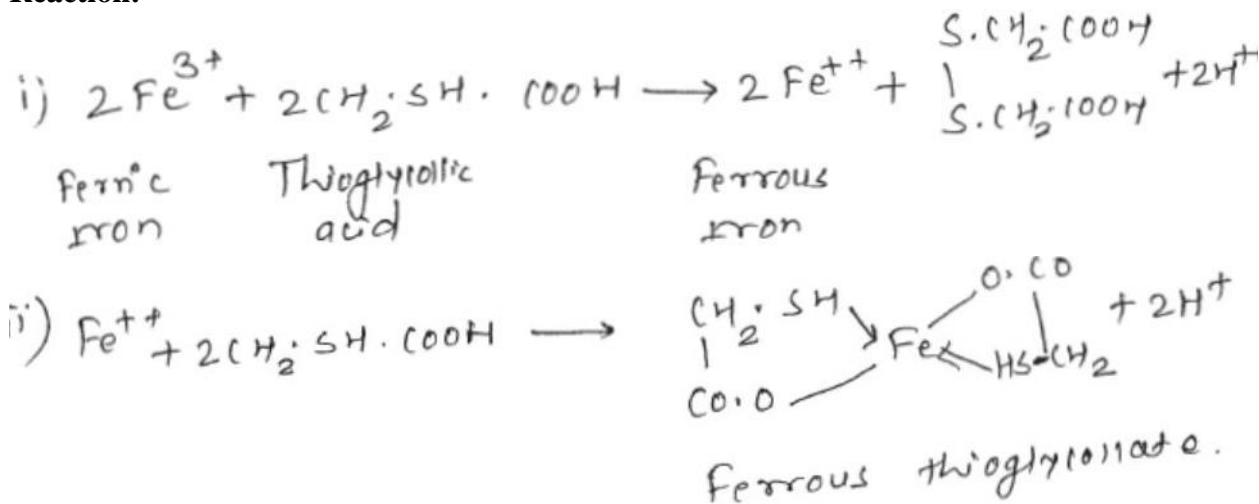 Reaction:
i) 2Fe³⁺ + 2CH₂.SH.COOH ⟶ 2Fe⁺⁺ + S.CH₂.COOH | S.CH₂.COOH +2H⁺
Ferric iron Thioglycollic acid Ferrous iron
ii) Fe⁺⁺ + 2CH₂.SH.COOH ⟶ CH₂.SH | CO.O Fe O.CO | HS-CH₂ + 2H⁺
Ferrous thioglycollate.